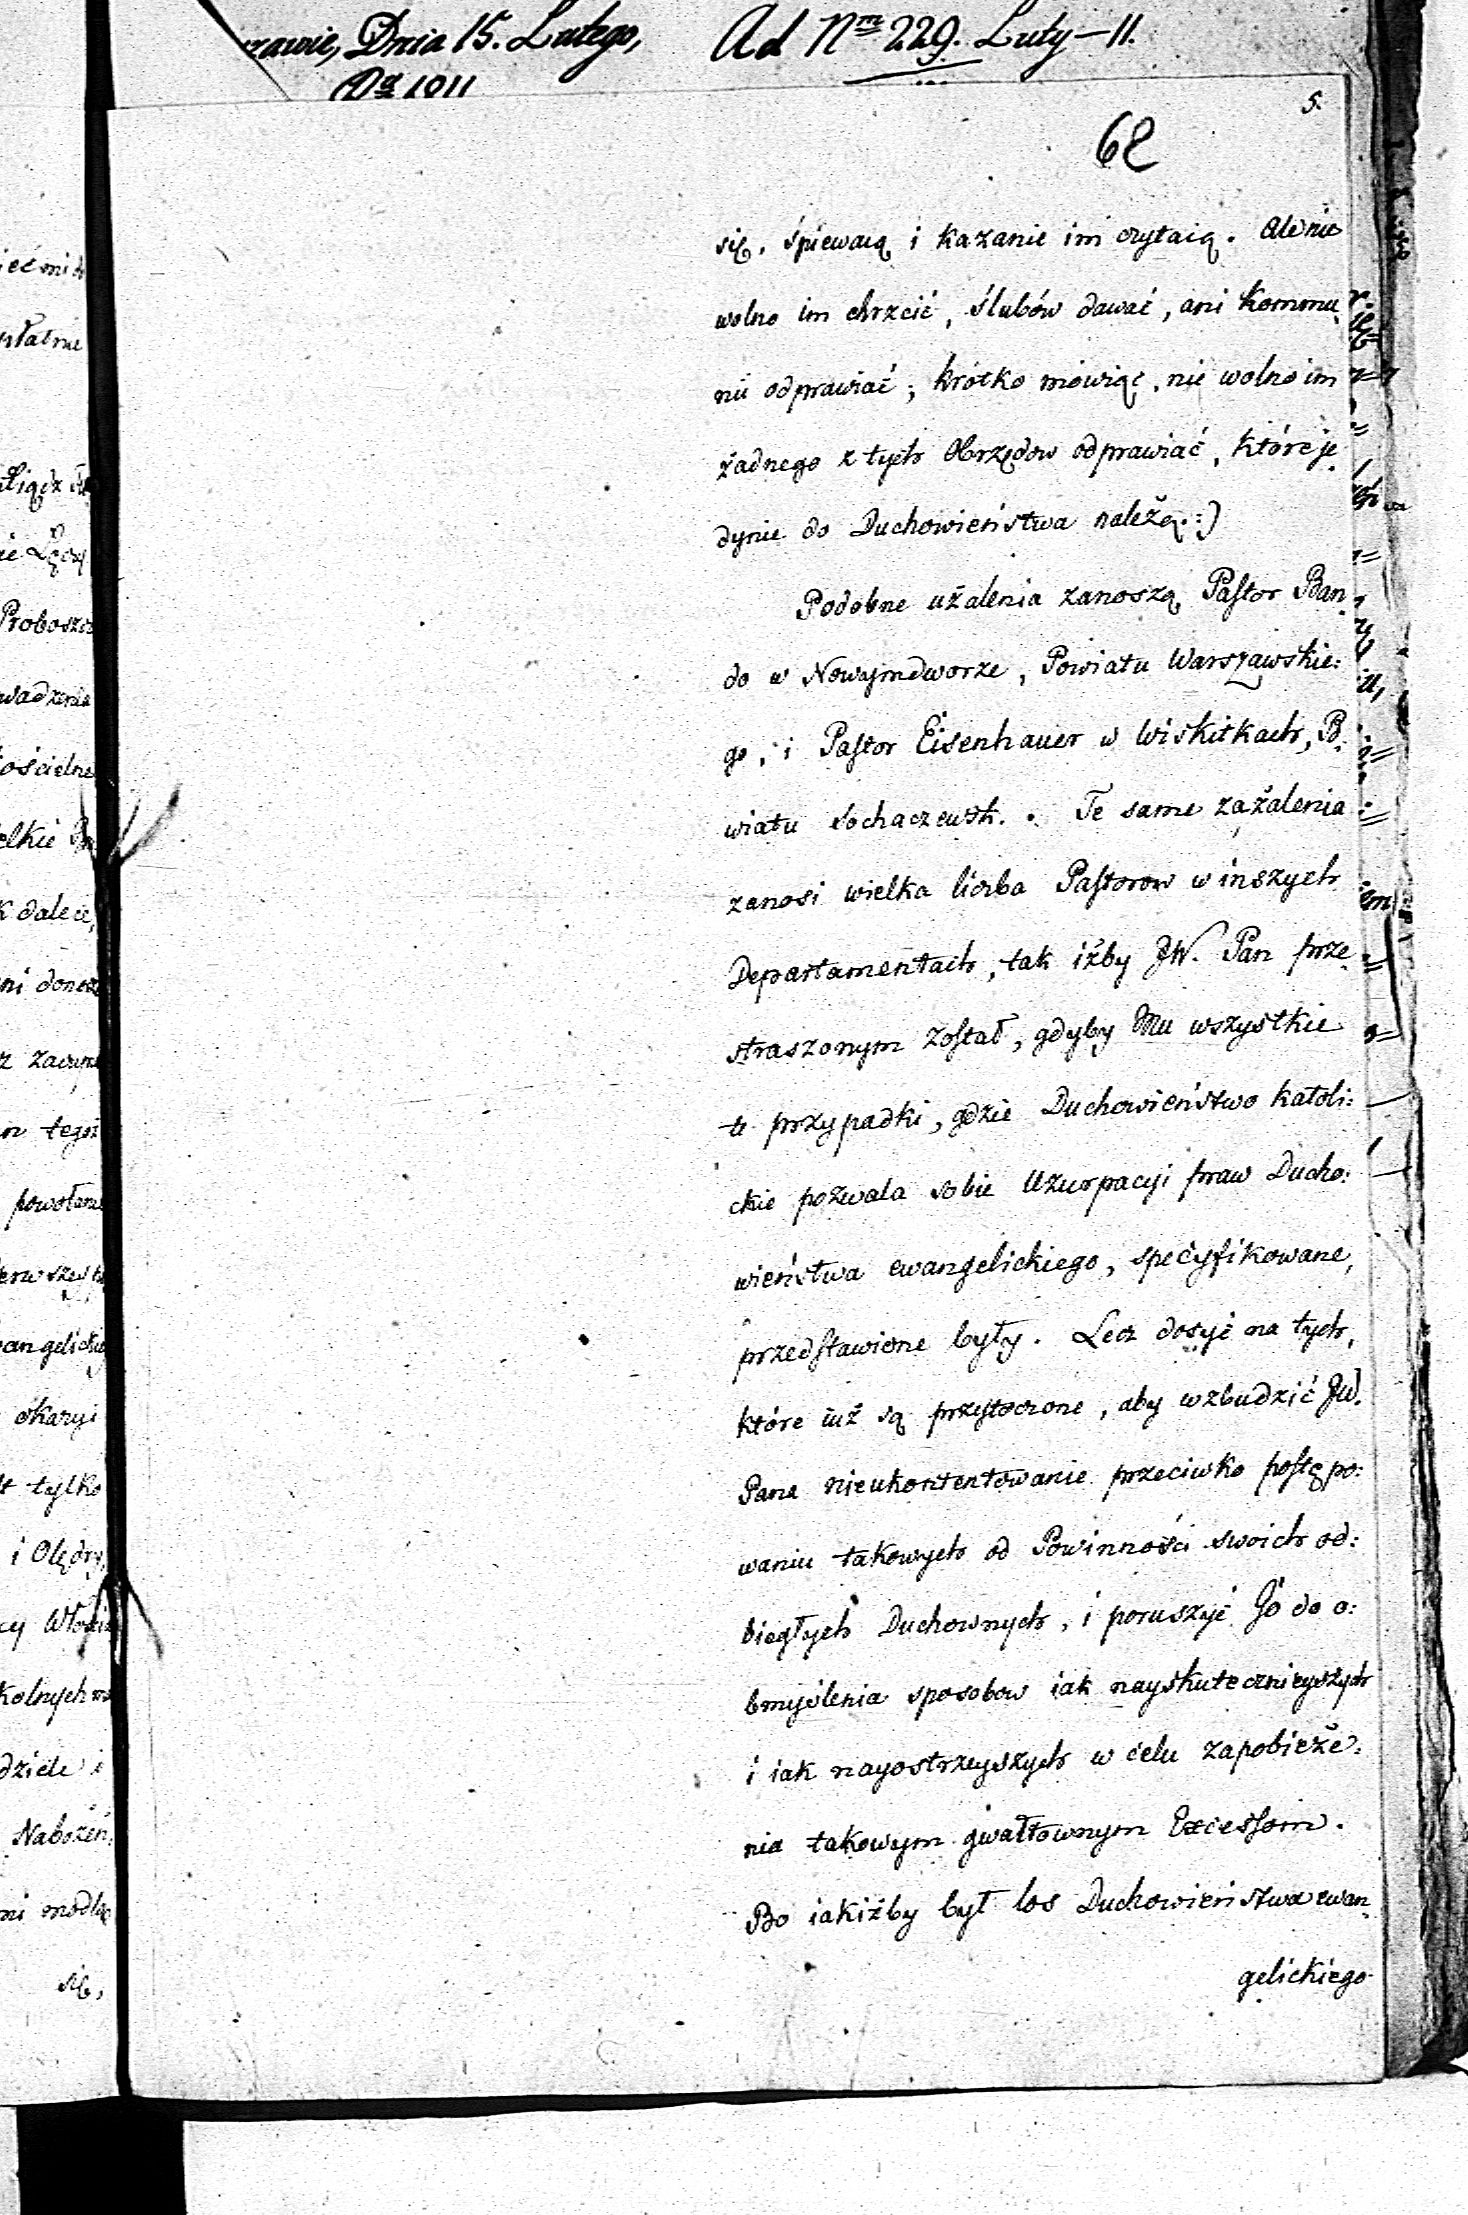 zawie, Dnia 15. Lutego,
Ad Nm 229. Luty-11.
5.
62
się, śpiewaią i kazanie im czytaią. Ale nie
wolno im chrzcić, ślubów dawać, ani Kommu,
nii odprawiać; krótko mówiąc, nie wolno im
żadnego z tych Obrzędow odprawiać, które je,
dynie do Duchowieństwa należą.:)
Podobne użalenia zanoszą Pastor Ban,
do w Nowymdworze, Powiatu Warszawskie:
go, i Pastor Eisenhauer w Wiskitkach, Po,
wiatu Sochaczewsk. Te same zażalenia
zanosi wielka liczba Pastorow w inszych
Departamentach, tak iżby JW. Pan prze,
straszonym został, gdyby Mu wszystkie
te przypadki, gdzie Duchowieństwo katoli:
ckie pozwala sobie Uzurpacyi praw Ducho:
wieństwa ewangelickiego, specyfikowane,
przedstawione były. Lecz dosyć na tych,
które iuż są przytoczone, aby wzbudzić JW.
Pana nieukontentowanie przeciwko postępo:
waniu takowych od Powinności swoich od:
biegłych Duchownych, i poruszyć Go do o:
bmyślenia sposobow iak nayskutecznieyszych
i iak nayostrzeyszych w celu zapobieże,
nia takowym gwałtownym Excessom.
Bo iakiżby był los Duchowieństwa ewan,
gelickiego